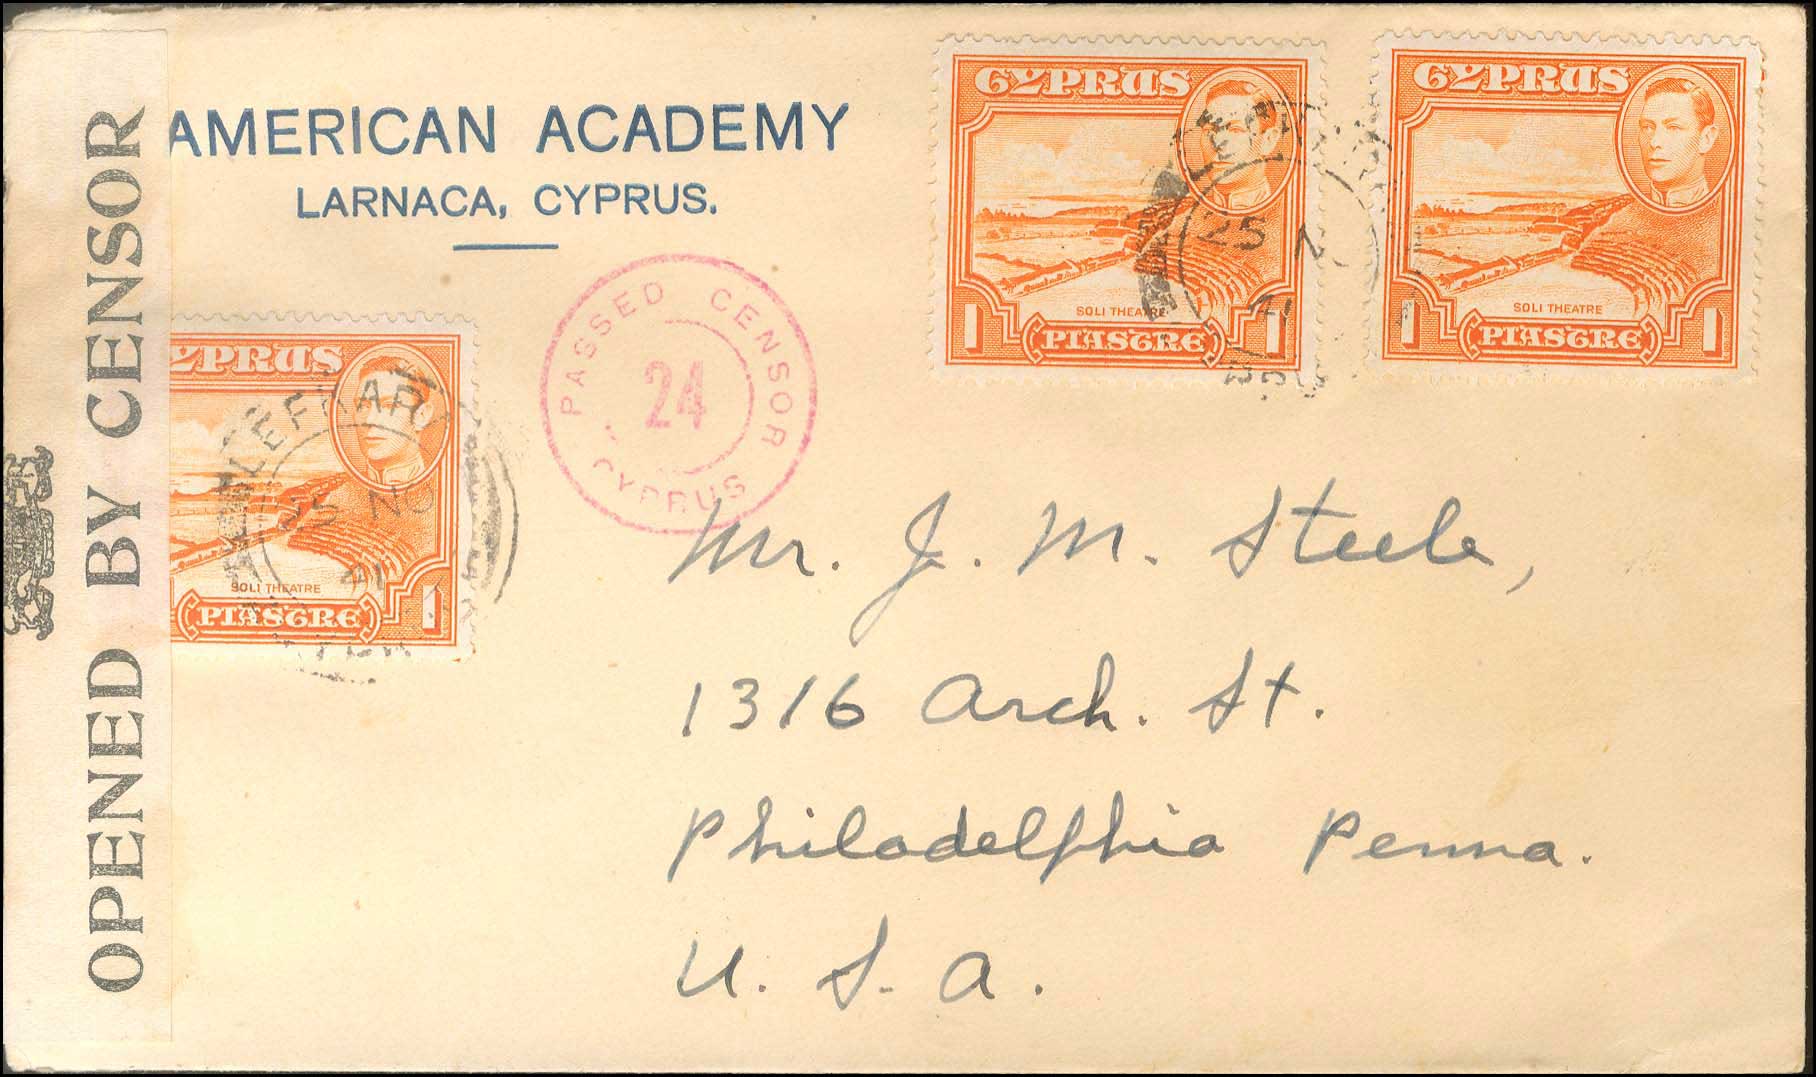 OPENED BY CENSOR
AMERICAN ACADEMY
LARNACA, CYPRUS.
CYPRUS
SOLI THEATRE
1 PIASTRE 1
CYPRUS
SOLI THEATRE
1 PIASTRE 1
25 N
41
YPRUS
SOLI THEATRE
PIASTRE 1
LEFKARA
25 NO
41
PASSED CENSOR
24
CYPRUS
Mr. J. M. Steele,
1316 Arch. St.
Philadelphia Penna.
U. S. A.